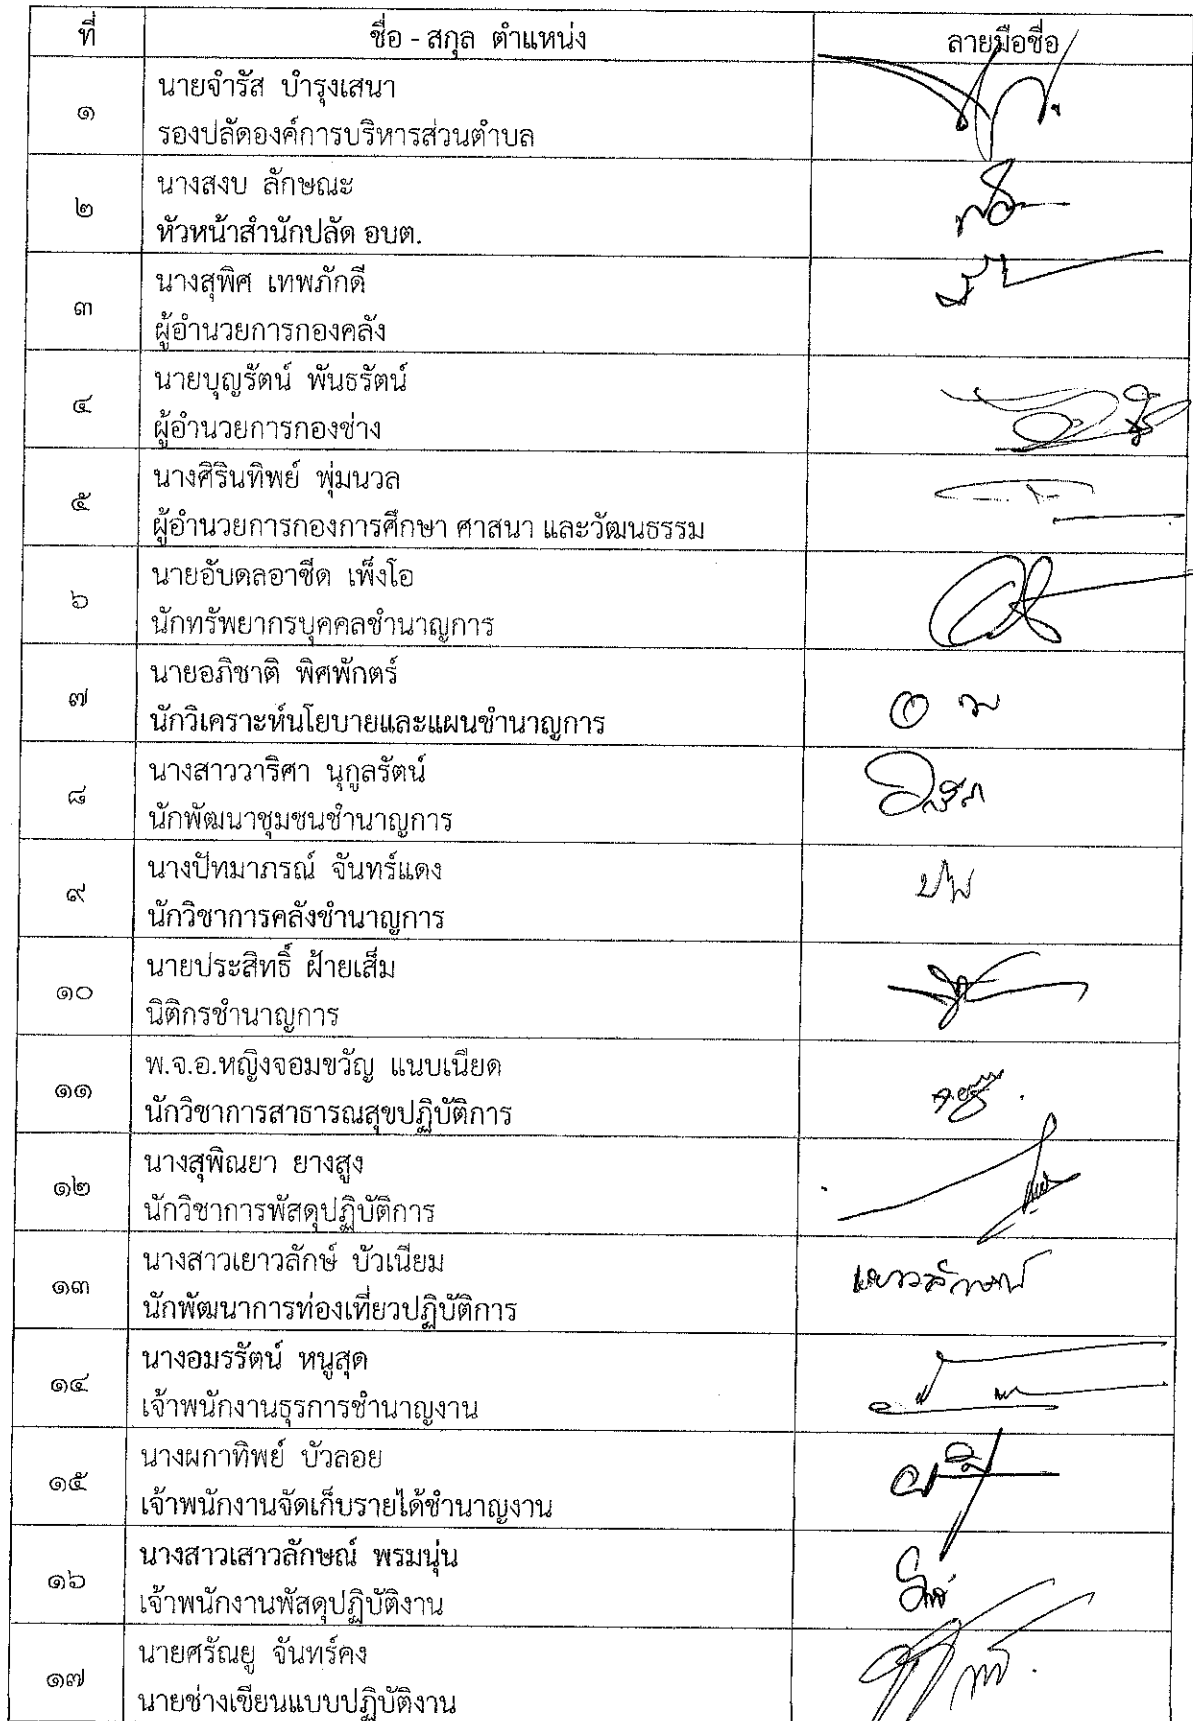 ที่ ชื่อ - สกุล ตำแหน่ง ลายมือชื่อ
๑ นายจำรัส บำรุงเสนา
รองปลัดองค์การบริหารส่วนตำบล
๒ นางสงบ ลักษณะ
หัวหน้าสำนักปลัด อบต.
๓ นางสุพิศ เทพภักดี
ผู้อำนวยการกองคลัง
๔ นายบุญรัตน์ พันธรัตน์
ผู้อำนวยการกองช่าง
๕ นางศิรินทิพย์ พุ่มนวล
ผู้อำนวยการกองการศึกษา ศาสนา และวัฒนธรรม
๖ นายอับดลอาซีด เพ็งโอ
นักทรัพยากรบุคคลชำนาญการ
๗ นายอภิชาติ พิศพักตร์
นักวิเคราะห์นโยบายและแผนชำนาญการ
๘ นางสาววาริศา นุกูลรัตน์
นักพัฒนาชุมชนชำนาญการ
๙ นางปัทมาภรณ์ จันทร์แดง
นักวิชาการคลังชำนาญการ
๑๐ นายประสิทธิ์ ฝ้ายเส็ม
นิติกรชำนาญการ
๑๑ พ.จ.อ.หญิงจอมขวัญ แนบเนียด
นักวิชาการสาธารณสุขปฏิบัติการ
๑๒ นางสุพิณยา ยางสูง
นักวิชาการพัสดุปฏิบัติการ
๑๓ นางสาวเยาวลักษ์ บัวเนียม เยาวลักษณ์
นักพัฒนาการท่องเที่ยวปฏิบัติการ
๑๔ นางอมรรัตน์ หนูสุด
เจ้าพนักงานธุรการชำนาญงาน
๑๕ นางผกาทิพย์ บัวลอย
เจ้าพนักงานจัดเก็บรายได้ชำนาญงาน
๑๖ นางสาวเสาวลักษณ์ พรมนุ่น
เจ้าพนักงานพัสดุปฏิบัติงาน
๑๗ นายศรัณยู จันทร์คง
นายช่างเขียนแบบปฏิบัติงาน